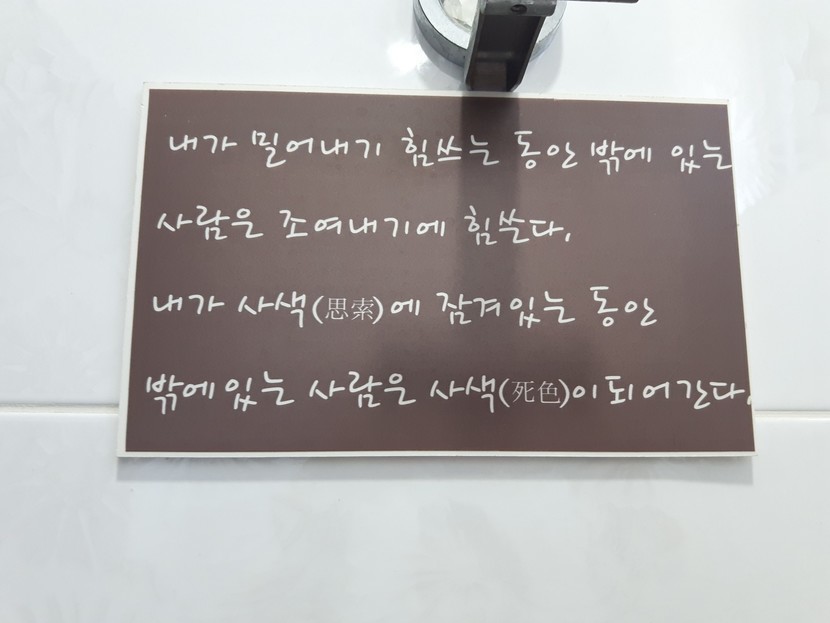 내가 밀어내기 힘쓰는 동안 밖에 있는
사람은 조여내기에 힘쓴다.
내가 사색(思索)에 잠겨있는 동안
밖에있는 사람은 사색(死色)이되어간다.